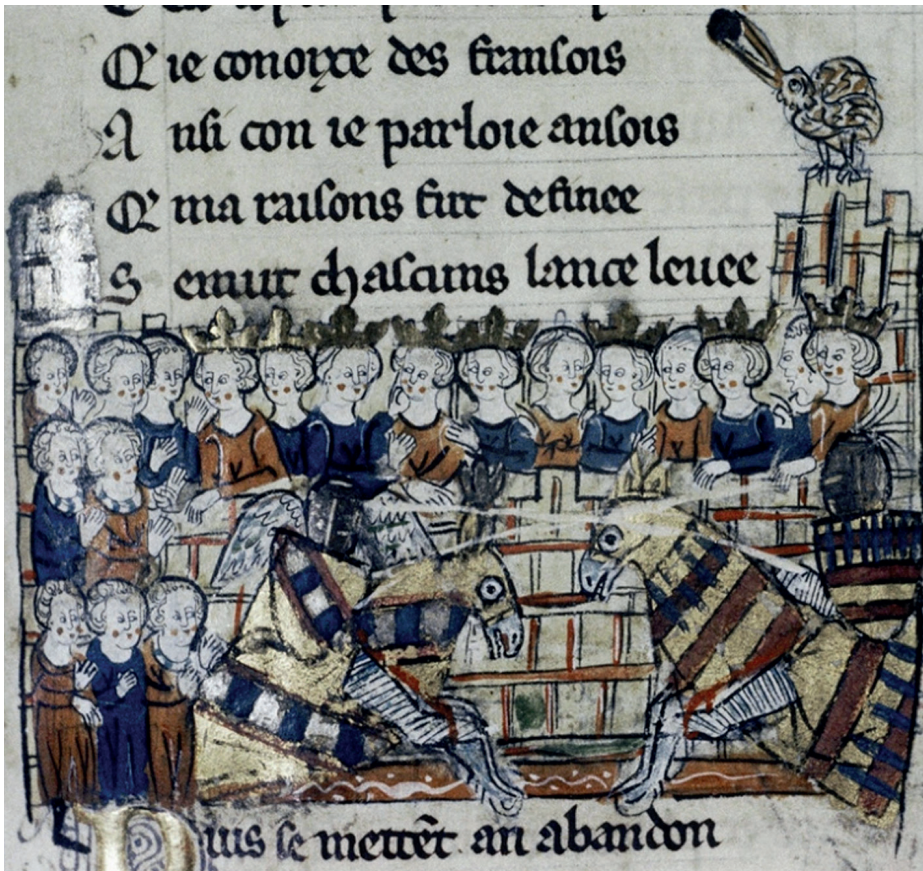 Q' ie conoixe des fransois
A nsi con ie parloie ansois
Q' ma raisons fut definee
S emut chascuns lance leuee
P uis se mettēt an abandon